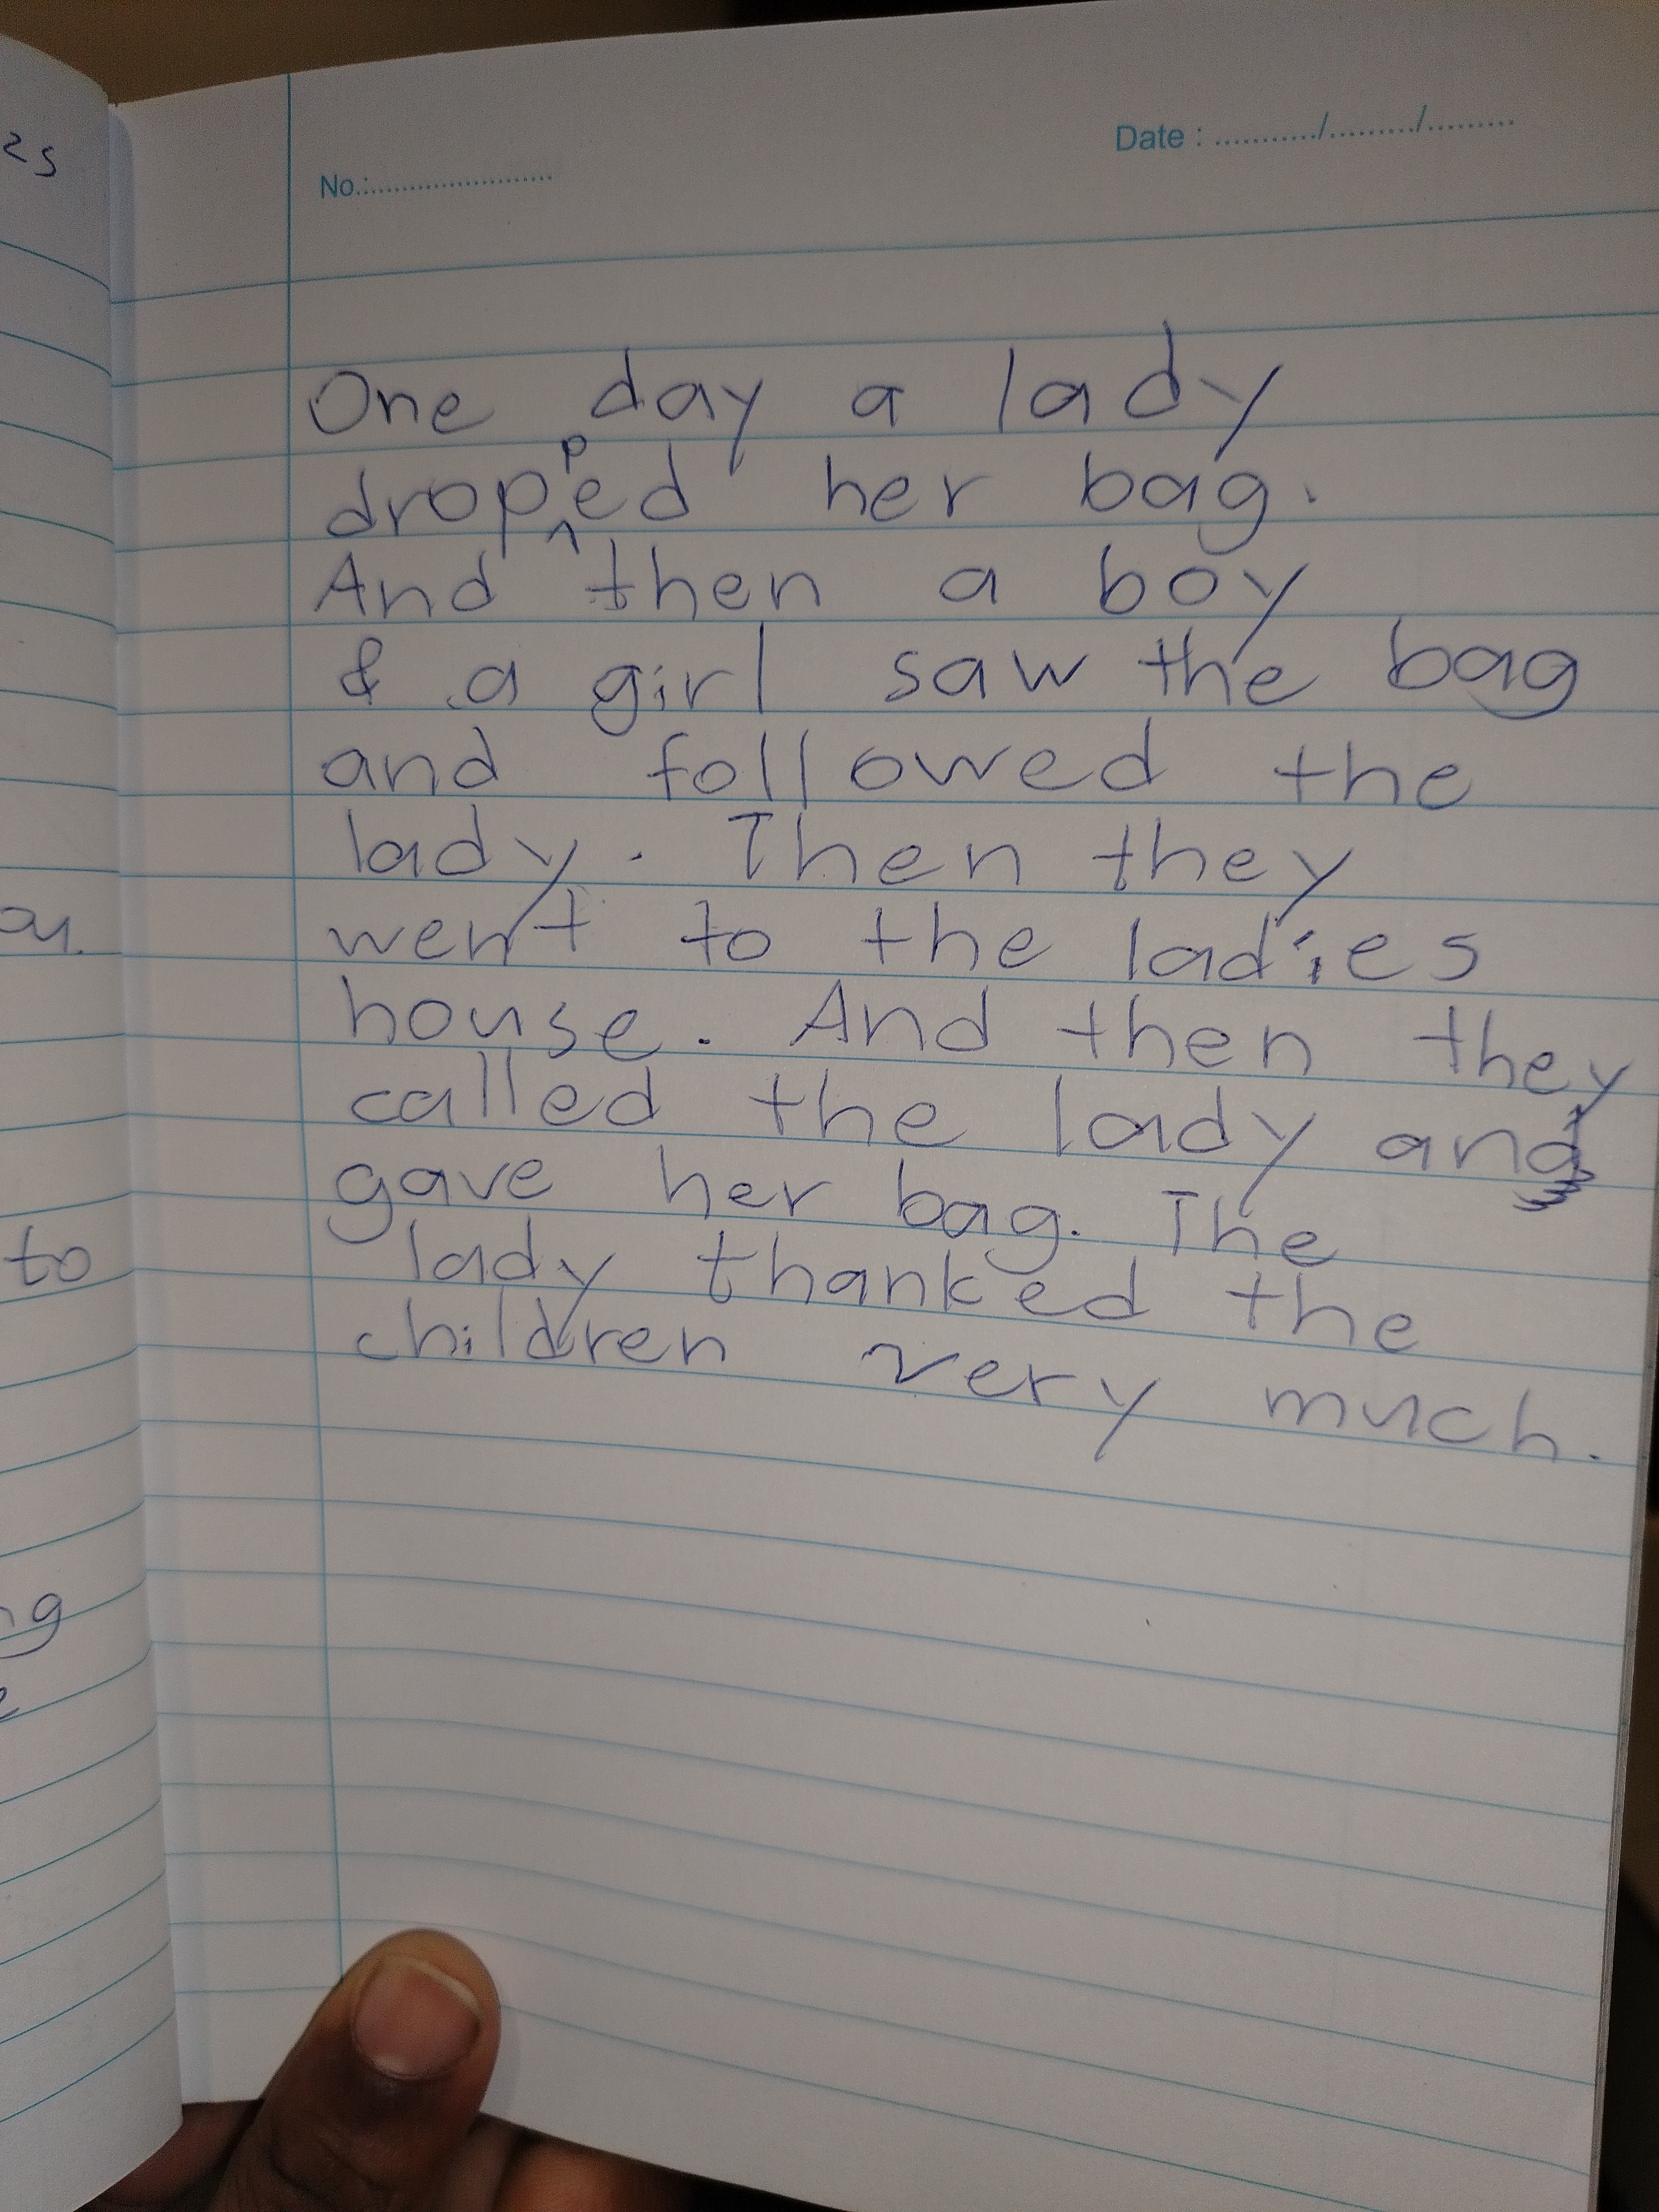 No.:........................
Date : ............/........./.........
One day a lady
dropped her bag.
And then a boy
& a girl saw the bag
and followed the
lady. Then they
went to the ladies
house. And then they
called the lady and
gave her bag. The
lady thanked the
children very much.
to